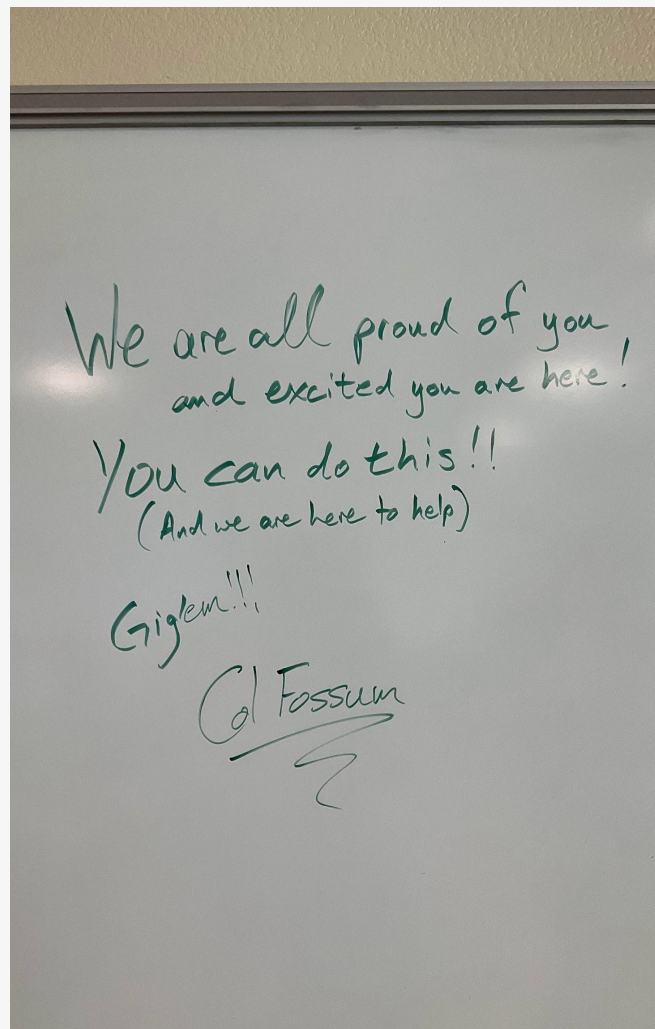 We are all proud of you
and excited you are here!
You can do this!!
(And we are here to help)
Gig'em!!!
Col Fossum